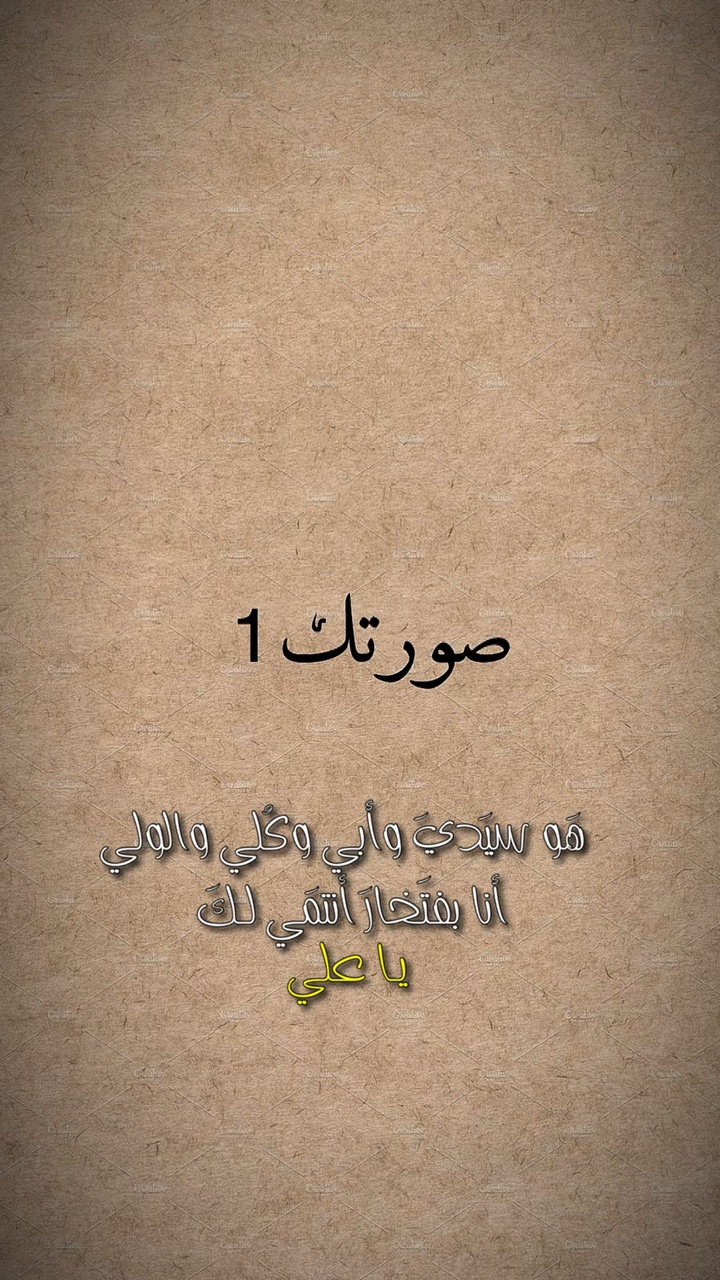 صورتك 1
هَو سيَديَ وأبي وكَلي والولي
أنا بفتَخارَ أنتمَي لكَ
يا علي